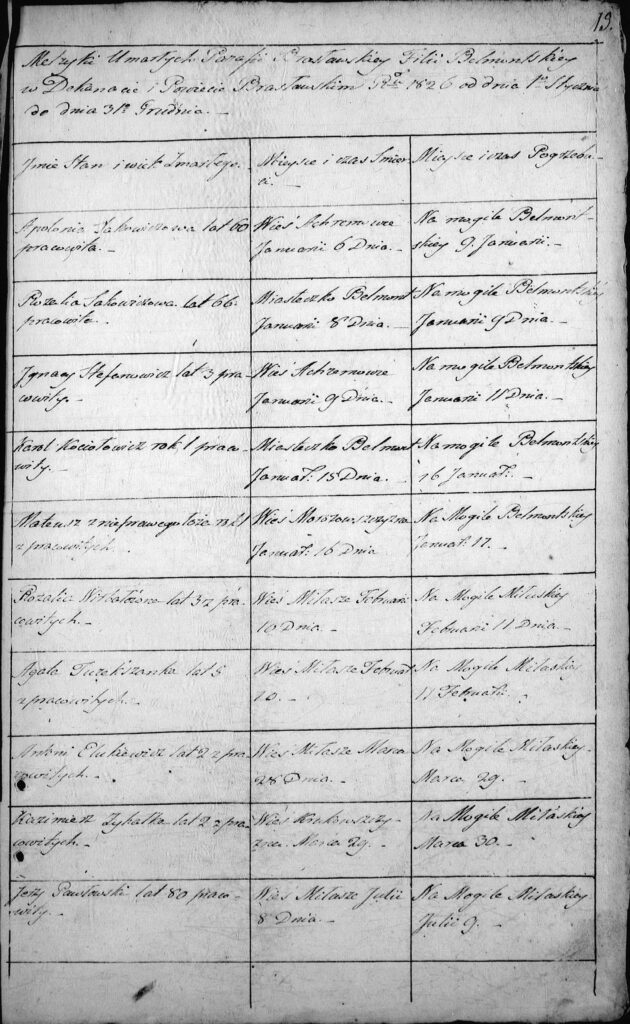 19.
Metryki Umarłych Parafii Brasławskiey Filii Belmontskiey
w Dekanacie i Powiecie Brasławskim Rku 1826 od dnia 1go Stycznia
do dnia 31go Grudnia.
Jmie Stan i wiek Zmarłego.
Mieysce i czas Smier-
ci.
Mieysce i czas Pogrzebu.
Apolonia Sakowiczowa lat 60
pracowita.
Wieś Achremowce
Januarii 6 Dnia.
Na mogile Belmont-
skiey 9. Januarii.
Rozalia Sakowiczowa lat 66.
pracowita.
Miasteczko Belmont
Januarii 8 Dnia.
Na mogile Belmontskiey
Januarii 9 Dnia.
Jgnacy Stefanowicz lat 3 pra-
cowity.
Wieś Achremowce
Januarii 9 Dnia.
Na mogile Belmontskiey
Januarii 11 Dnia.
Karol Kociołowicz rok 1 praco-
wity.
Miasteczko Belmont
Januar: 15 Dnia.
Na mogile Belmontskiey
16 Januar:
Mateusz z nieprawego łoża rok 1
z pracowitych.
Wieś
Januar: 16 Dnia
Na Mogile Belmontskiey
Januar: 17.
Rozalia lat 32 pra-
cowitych.
Wieś Miłasze Februarii
10 Dnia.
Na Mogile Miłaskiey
Februarii 11 Dnia.
Agata lat 5
z pracowitych.
Wieś Miłasze Februar:
10.
Na Mogile Miłaskiey
11 Februarii.
Antoni Elukiewicz lat 2 z pra-
cowitych.
Wieś Miłasze Marca
28 Dnia.
Na Mogile Miłaskiey.
Marca 29.
Kazimierz Zykałka lat 2 z pra-
cowitych.
Wieś
Marca 29.
Na Mogile Miłaskiey
Marca 30.
Jerzy Pawłowski lat 80 praco-
wity.
Wieś Miłasze Julii
8 Dnia.
Na Mogile Miłaskiey
Julii 9.